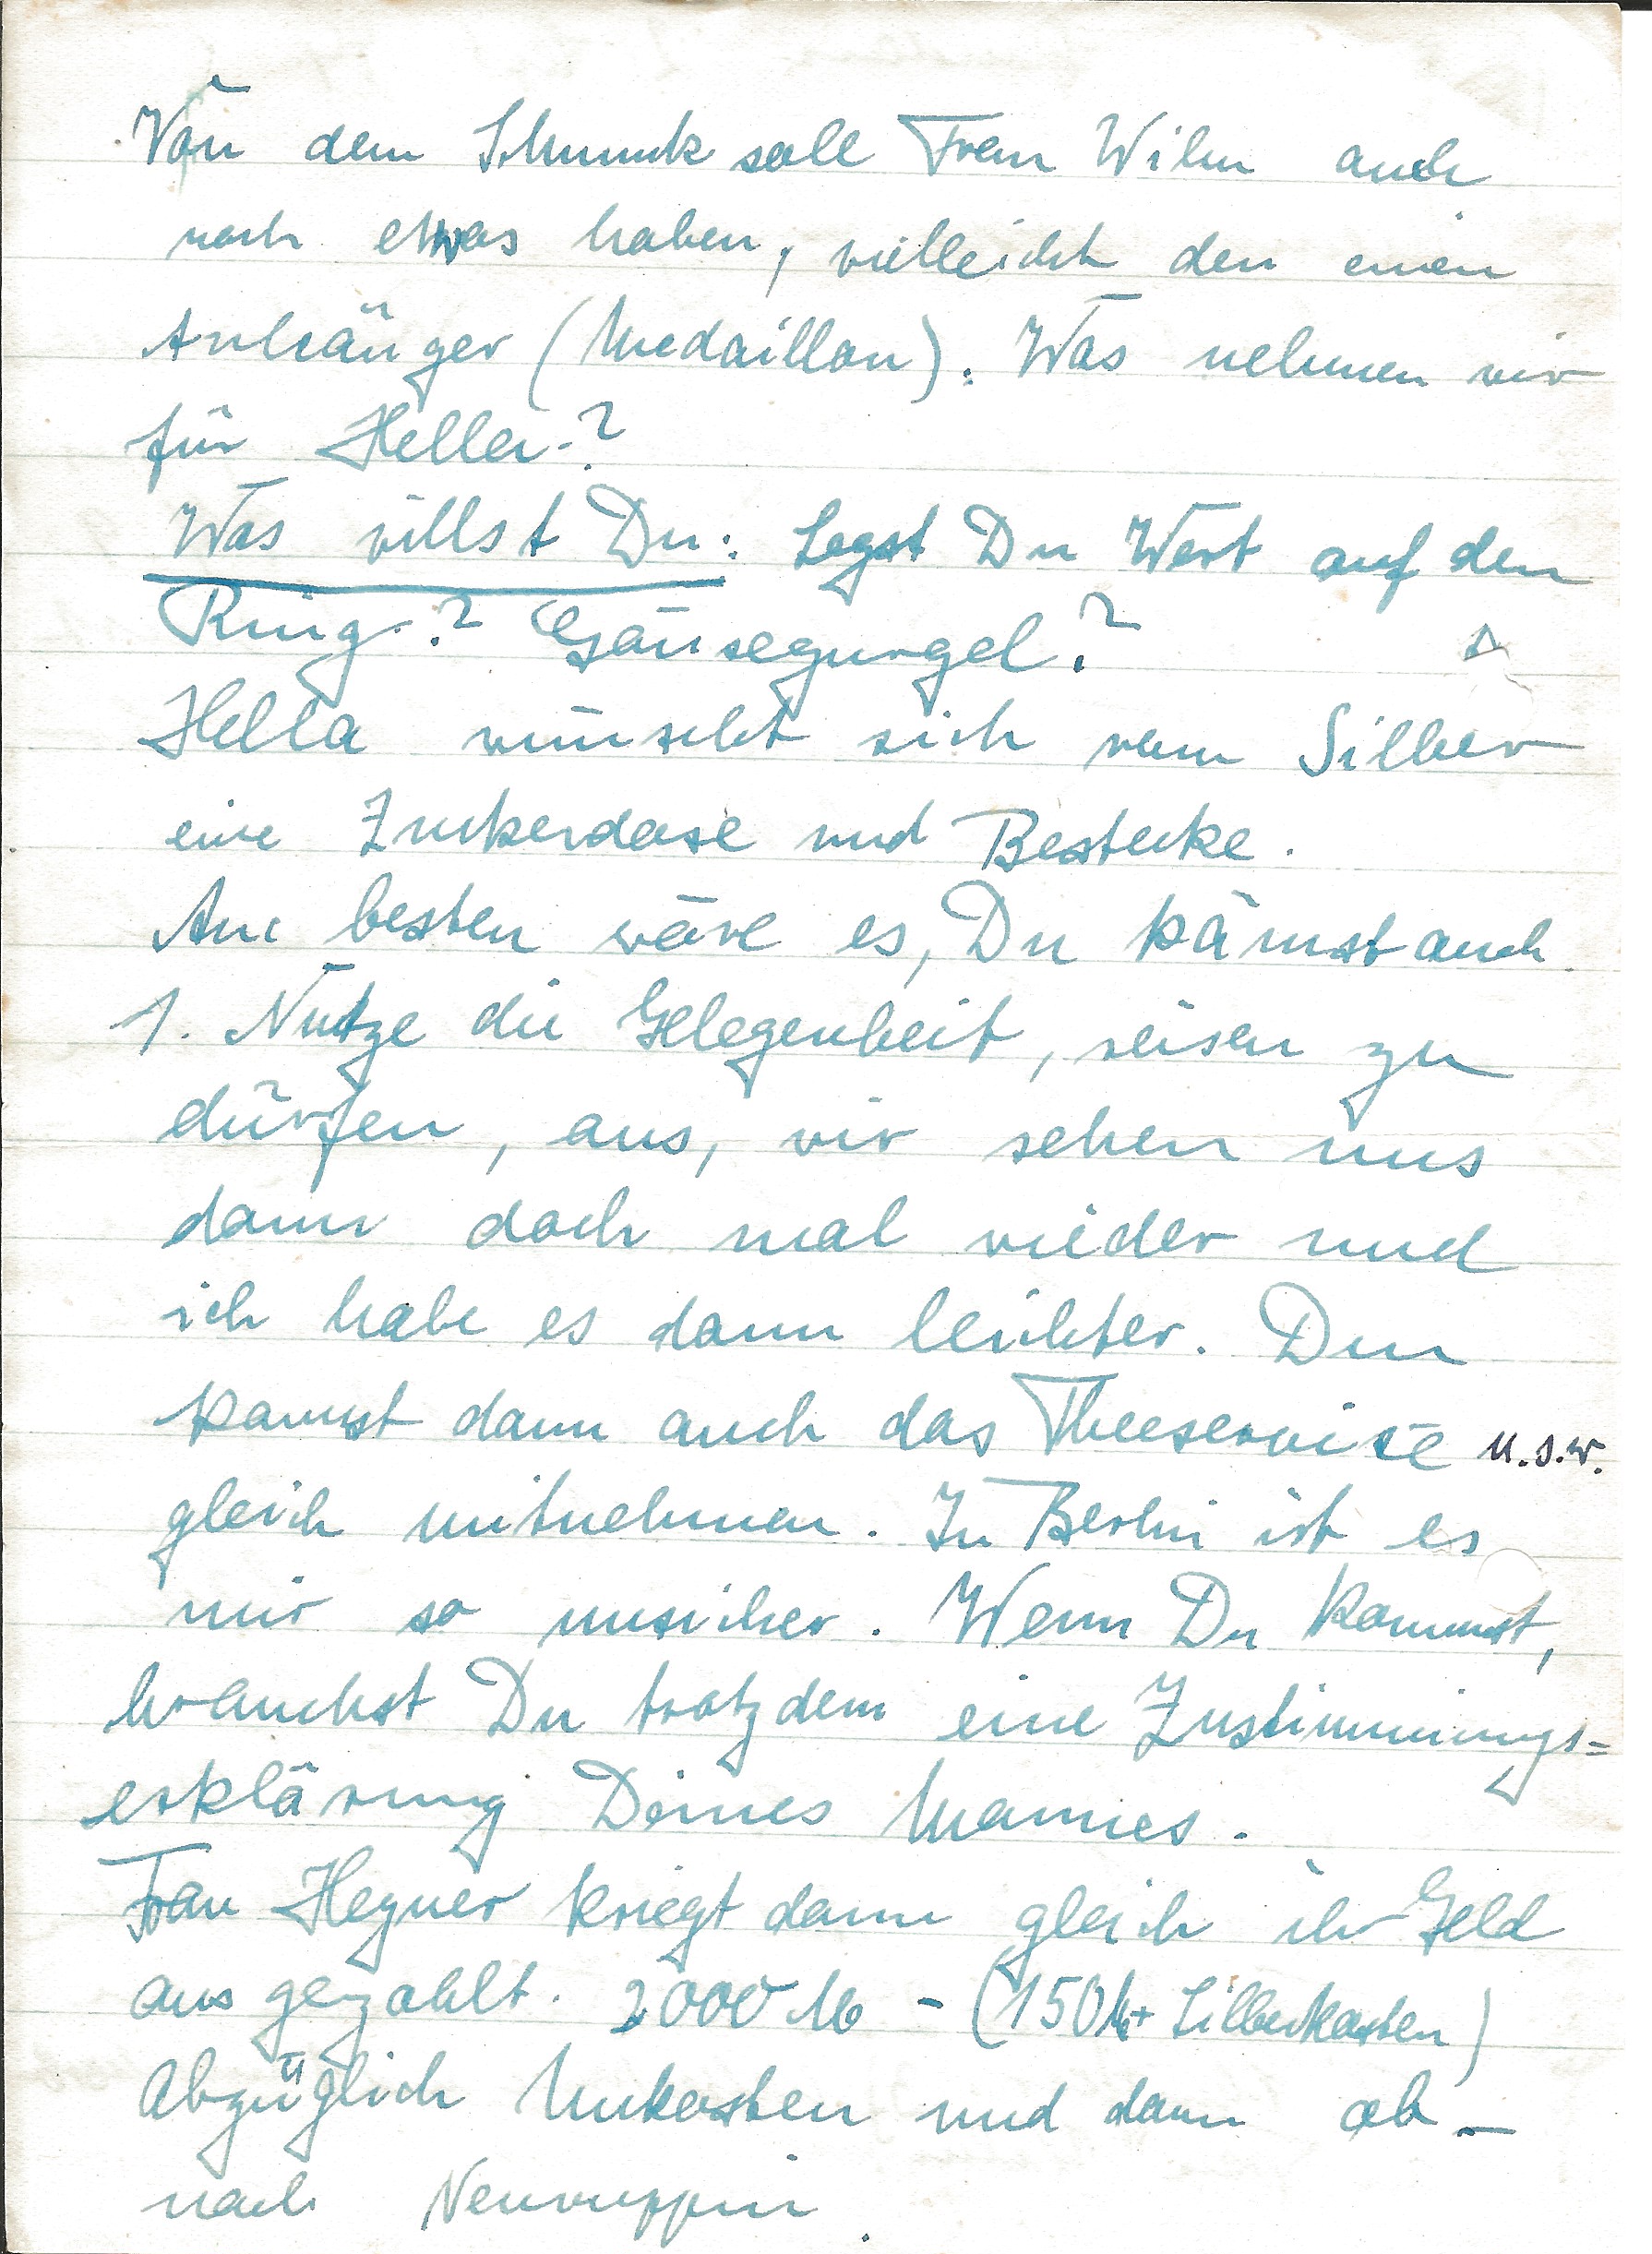 Von dem Schmuck soll Frau Wilm auch
noch etwas haben, vielleicht den einen
Anhänger (Medaillon). Was nehmen wir
für Hella?
Was willst Du: Legst Du Wert auf den
Ring? Gänsegurgel?
Hella wünscht sich vom Silber
eine Zuckerdose und Bestecke.
Am besten wäre es, Du kämst auch
1. Nutze die Gelegenheit, reisen zu
dürfen, aus, wir sehen uns
dann doch mal wieder und
ich habe es dann leichter. Du
kannst dann auch das Theeservice u.s.w.
gleich mitnehmen. In Berlin ist es
mir so unsicher. Wenn Du kommst,
brauchst Du trotzdem eine Zustimmungs=
erklärung Deines Mannes.
Frau Hegner kriegt dann gleich ihr Geld
ausgezahlt. 2000 M - (150 M + Silberkasten)
Abzüglich Unkosten und dann ab -
nach Neuruppin.